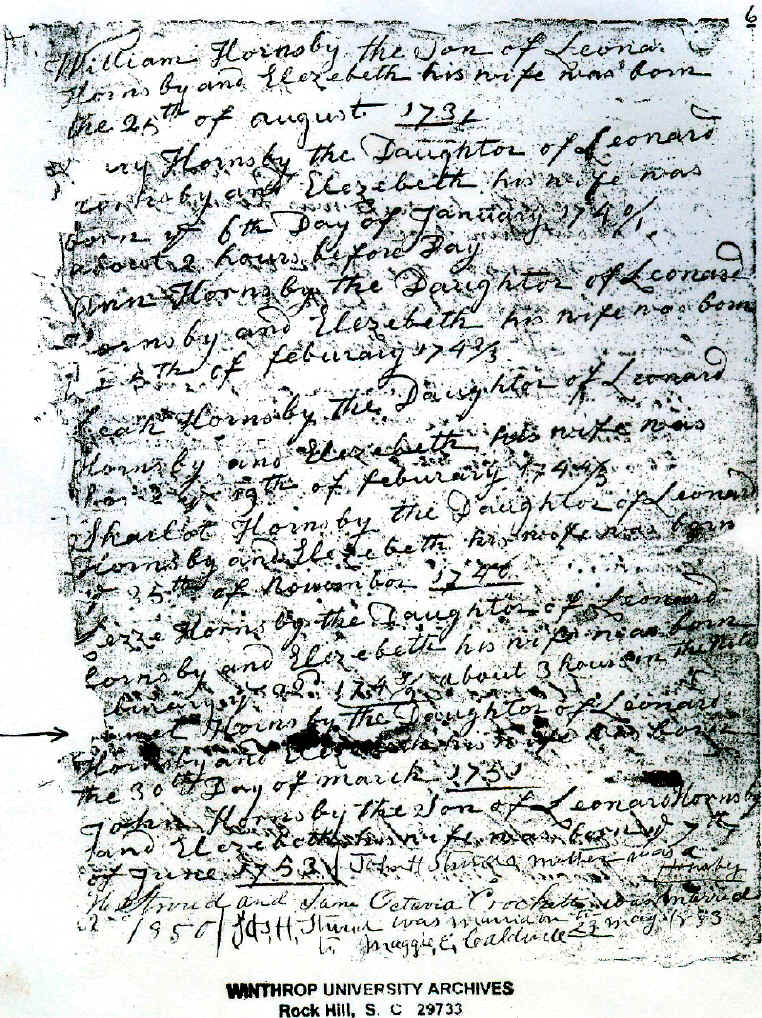 6
William Hornsby the Son of Leona
Hornsby and Elezebeth his wife was born
the 25th of august 1731
ury Hornsby the Daughtor of Leonard
ornsby and Elezebeth his wife was
born ye 6th Day of January 174 0/1
about 2 hours before Day
Ann Hornsby the Daughtor of Leonard
ornsby and Elezebeth his wife was born
5th of feburary 174 2/3
Leah Hornsby the Daughtor of Leonard
Hornsby and Elezebeth his wife was
ye 19th of feburary 174 4/5
Skarlot Hornsby the Daughtor of Leonard
Hornsby and Elezebeth his wife was born
ye 25th of Novembor 1746
Lezze Hornsby the Daughtor of Leonard
hornsby and Elezebeth his wife was born
ye 22 about 3 hours in the
Hornsby the Daughtor of Leonard
Hornsby and his wife was bor
the 30th Day of march 1751
John Hornsby the Son of Leonard Hornsby
and Elezebeth his wife was born ye 7th
of June 1753 John H Strouds mother was a
Hornsby
Stroud and Jane Octavia Crockett was married
1850 J, H, Stroud was married on 22 may 1883
to Maggie, E, Caldwell
WINTHROP UNIVERSITY ARCHIVES
Rock Hill, S. C 29733